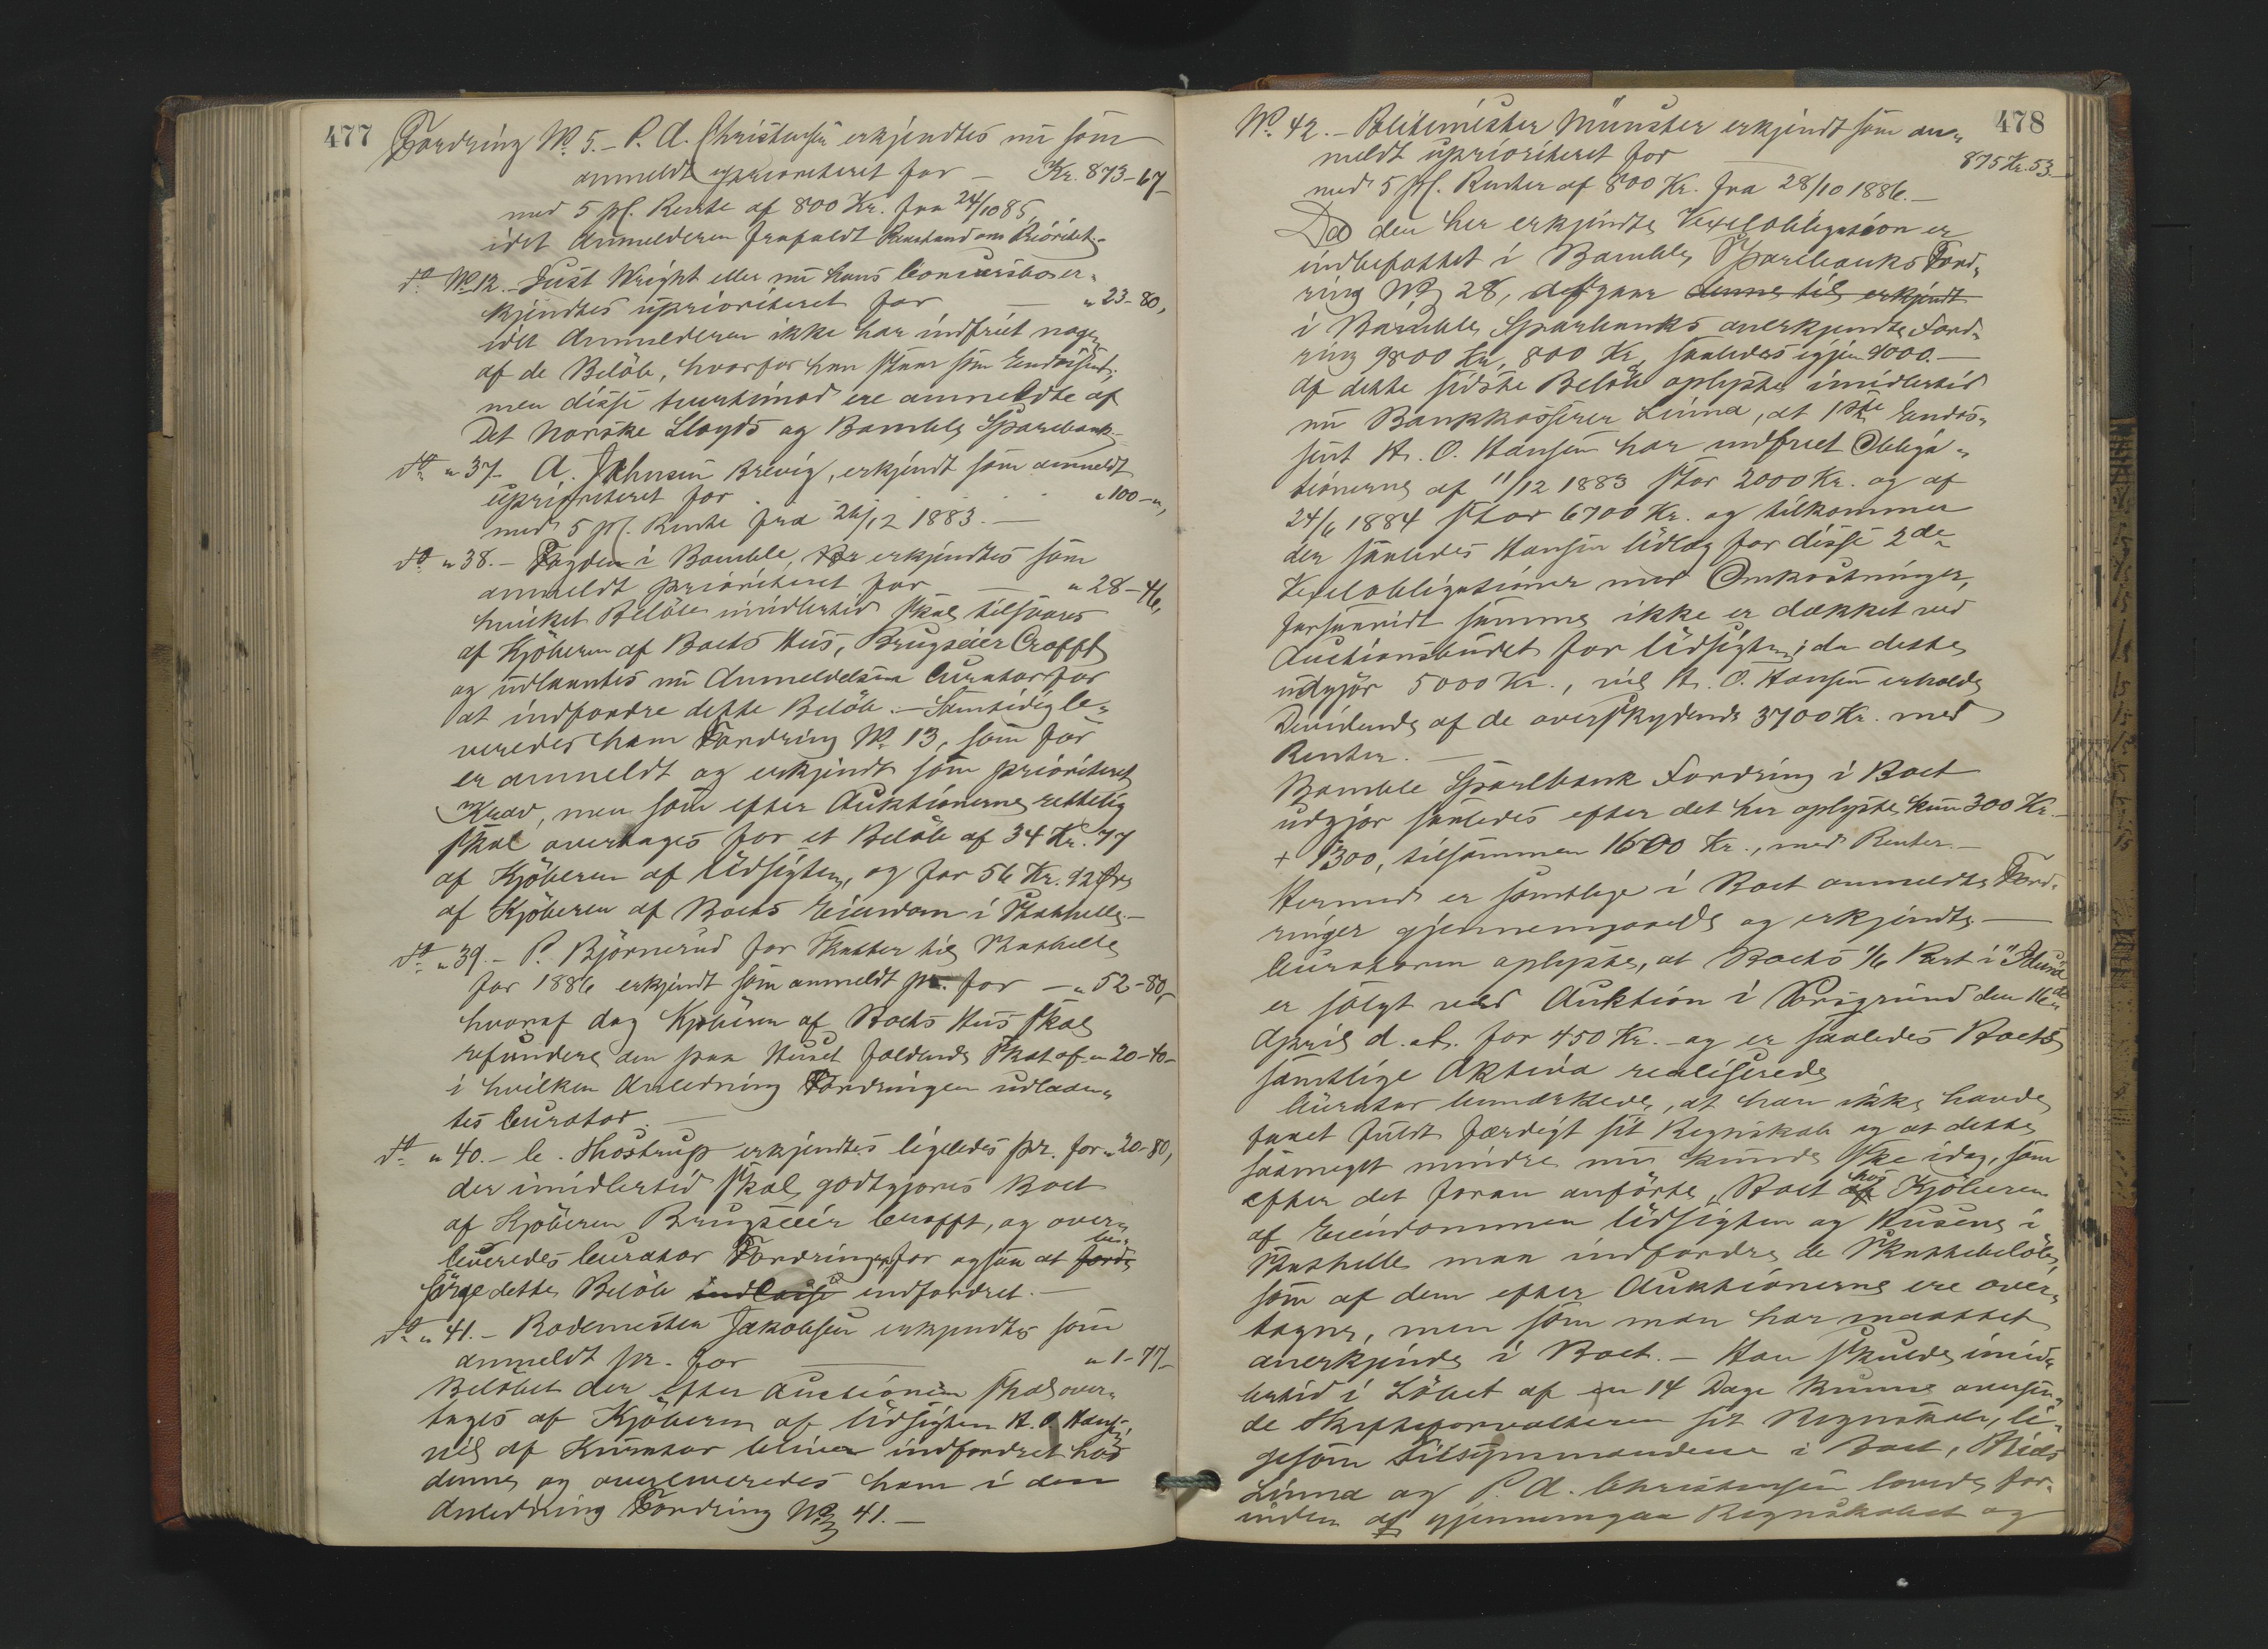 477
Fordring No. 5. - P. A. Christensen erkjendtes nu som
anmeldt uprioriteret for - Kr. 873-67
med 5 pCt. Rente af 800 Kr. fra 24/10 85,
idet Anmelderen frafaldt Paastand om Prioritet.
do No 12. - Just Wright eller nu hans Concursbo er-
kjendtes uprioriteret for - " 23-80,
idet Anmelderen ikke har indfriet nogen
af de Beløb, hvorfor han staar som Endossent,
men disse tvertimod ere anmeldte af
Det Norske Lloyds og Bamble Sparebank.
do " 37. A. Johnsen Brevig, erkjendt som anmeldt
uprioriteret for " 100-",
med 5 pCt. Rente fra 26/12 1883. -
do " 38. - Fogden i Bamble, erkjendtes som
anmeldt prioriteret for - " 28-46,
hvilket Beløb imidlertid skal tilsvares
af Kjøberen af Boets Hus, Brugseier Crofft
og udlaantes nu Anmeldelsen Curator for
at indfordre dette Beløb. - Samtidig le-
veredes ham Fordring No. 13, som før
er anmeldt og erkjendt som prioriteret
Krav, men som efter Auktionerne rettelig
skal overtages for et Beløb af 34 Kr. 77
af Kjøberen af Udsigten, og for 56 Kr. 92 Øre
af Kjøberen af Boets Eiendom i Stathelle. -
do " 39. - P. Bjørnerud for Skatter til Stathelle
for 1886 erkjendt som anmeldt pr. for - " 52-80,
hvoraf dog Kjøberen af Boets Hus skal
refundere den paa Huset faldende Skat af " 20-40-
i hvilken Anledning Fordringen udlaan-
tes Curator. -
do " 40. - C. Hostrup erkjendtes ligeledes pr. for " 20-80,
der imidlertid skal godtgjøres Boet
af Kjøberen Brugseier Crofft, og over-
leveredes Curator Fordringen for ogsaa at fords be-
sørge dette Beløb indfordret. -
do " 41. - Rodemester Jakobsen erkjendtes som
anmeldt pr. for - " 1-77-
Beløbet der efter Auctionen skal over-
tages af Kjøberen af Udsigten H. O. Hansen
vil af Kurator blive indfordret hos
denne og overleveredes ham i den
Anledning Fordring No 41. -
478
No. 42. - Politimester Münster erkjendt som an-
meldt uprioriteret for - 875 Kr. 53. -
med 5 pCt. Renter af 800 Kr. fra 28/10 1886. -
Da den her erkjendte Vexelobligation er
indbefattet i Bamble Sparebanks Ford-
ring No 28, afgaar denne til erkjendt
i Bamble Sparbanks anerkjendte Ford-
ring 9800 Kr, 800 Kr, saaledes igjen 9000. -
af dette sidste Beløb oplyste imidlertid
nu Bankkasserer Linna, at 1ste Endos-
sent H. O. Hansen har indfriet Obliga-
tionerne af 11/12 1883 stor 2000 Kr. og af
24/6 1884 stor 6700 Kr. og tilkommer
der saaledes Hansen Udlæg for disse 2de
Vexelobligationer med Omkostninger,
forsaavidt samme ikke er dækket ved
Auctionsbudet for Udsigten; da dette
udgjør 5000 Kr., vil H. O. Hansen erholde
Dividende af de overskydende 3700 Kr. med
Renter. -
Bamble Sparebank Fordring i Boet
udgjør saaledes efter det her oplyste kun 300 Kr.
+ 1300, tilsammen 1600 Kr., med Renter. -
Hermed er samtlige i Boet anmeldte Ford-
ringer gjennemgaaede og erkjendte -
Curatoren oplyste, at Boets 1/6 Part i "Iduna"
er solgt ved Auktion i Porsgrund den 16de
April d. A. for 450 Kr. - og er saaledes Boets
samtlige Aktiva realiserede
Curator bemærkede, at han ikke havde
faaet fuldt færdigt sit Regnskab og at dette
saameget mindre nu kunde ske idag, som
efter det foran anførte, Boet af hos Kjøberen
af Eiendommen Udsigten og Husene i
Stathelle maa indfordre de Skattebeløb,
som af dem efter Auktionerne ere over-
tagne, men som man har maattet
anerkjende i Boet. - Han skulde imid-
lertid i Løbet af en 14 Dage kunne oversen-
de Skifteforvalteren sit Regnskab, li-
gesom Tilsynsmændene i Boet,
Linna og P. A. Christensen lovede for-
inden at gjennemgaa Regnskabet og